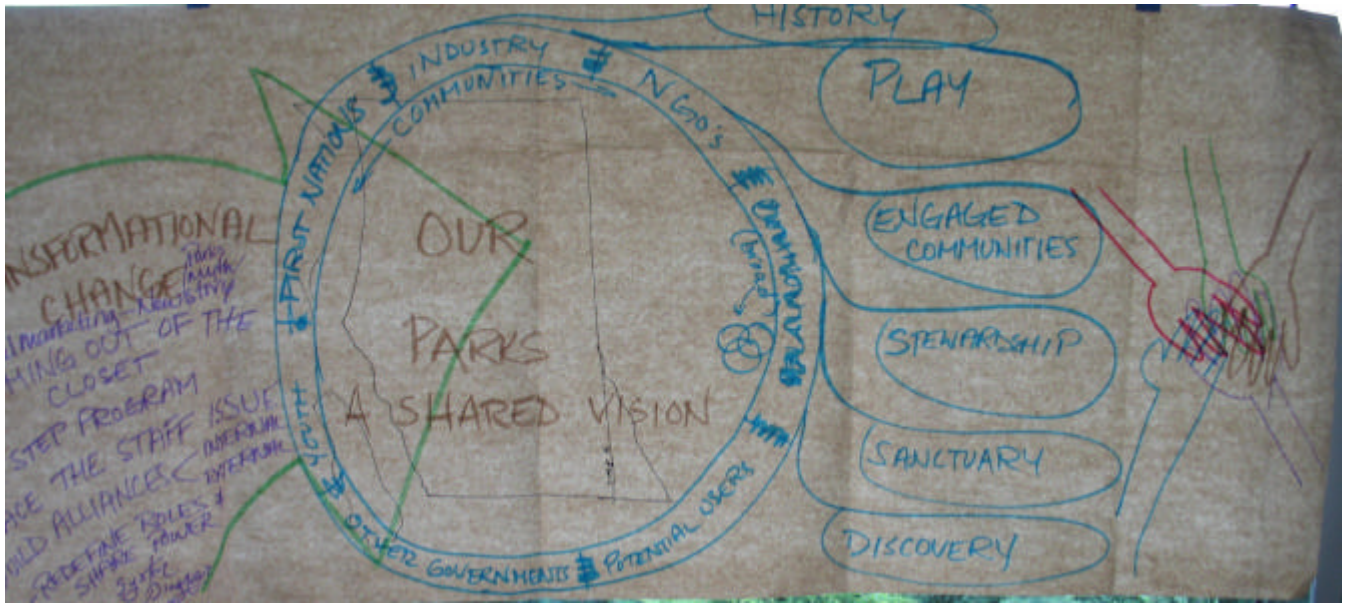 HISTORY
PLAY
ENGAGED
COMMUNITIES
STEWARDSHIP
SANCTUARY
DISCOVERY
INDUSTRY
COMMUNITIES
NGO's
(broad)
POTENTIAL USERS
OTHER GOVERNMENTS
YOUTH
FIRST NATIONS
OUR
PARKS
A SHARED VISION
ANSFORMATIONAL
CHANGE
MING OUT OF THE
CLOSET
STEP PROGRAM
ACE THE STAFF ISSUE
ILD ALLIANCES < INTERNAL
EXTERNAL
REDEFINE ROLES &
SHARE POWER